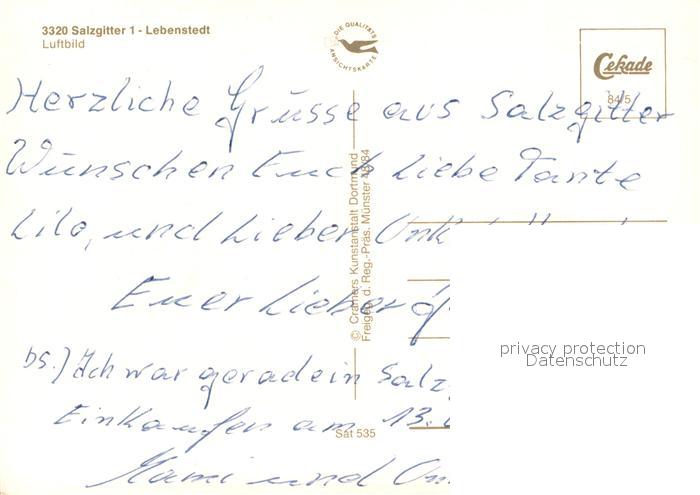 3320 Salzgitter 1 - Lebenstedt
Luftbild
DIE QUALITÄTS
ANSICHTSKARTE
Cekade
84/5
Herzliche Grüsse aus Salzgitter
Wünschen Euch Liebe Tante
Lilo, und Lieber Onk
Euer Lieber
© Cramers Kunstanstalt Dortmund
Freigeg. d. Reg.-Präs. Münster 48/84
ps.) Ich war gerade in Salz
Einkaufen am 13.
Sat 535
Mami und On
privacy protection
Datenschutz